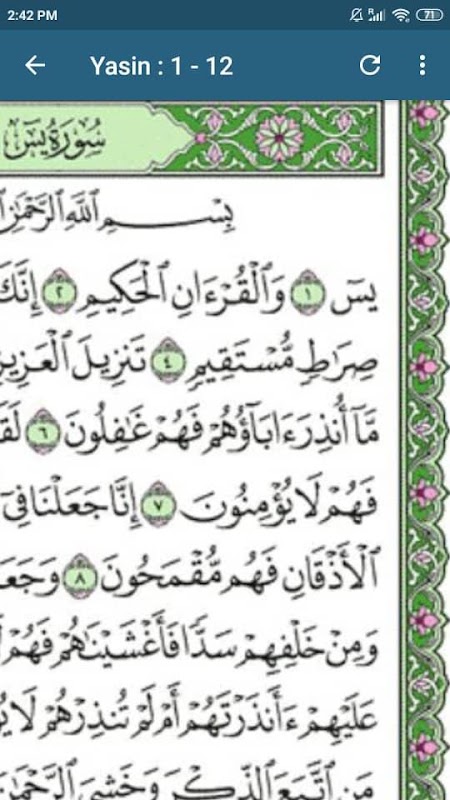 2:42 PM 71
Yasin : 1 - 12
سُورَةُ يسٓ
بِسْمِ ٱللَّهِ ٱلرَّحْمَٰنِ
يسٓ ١ وَٱلْقُرْءَانِ ٱلْحَكِيمِ ٢ إِنَّكَ
صِرَٰطٍ مُّسْتَقِيمٍ ٤ تَنزِيلَ ٱلْعَزِيزِ
مَّآ أُنذِرَ ءَابَآؤُهُمْ فَهُمْ غَٰفِلُونَ ٦ لَقَ
فَهُمْ لَا يُؤْمِنُونَ ٧ إِنَّا جَعَلْنَا فِىٓ
ٱلْأَذْقَانِ فَهُم مُّقْمَحُونَ ٨ وَجَعَ
وَمِنْ خَلْفِهِمْ سَدًّا فَأَغْشَيْنَٰهُمْ فَهُمْ لَ
عَلَيْهِمْ ءَأَنذَرْتَهُمْ أَمْ لَمْ تُنذِرْهُمْ لَا يُ
مَنِ ٱتَّبَعَ ٱلذِّكْرَ وَخَشِىَ ٱلرَّحْمَٰنَ